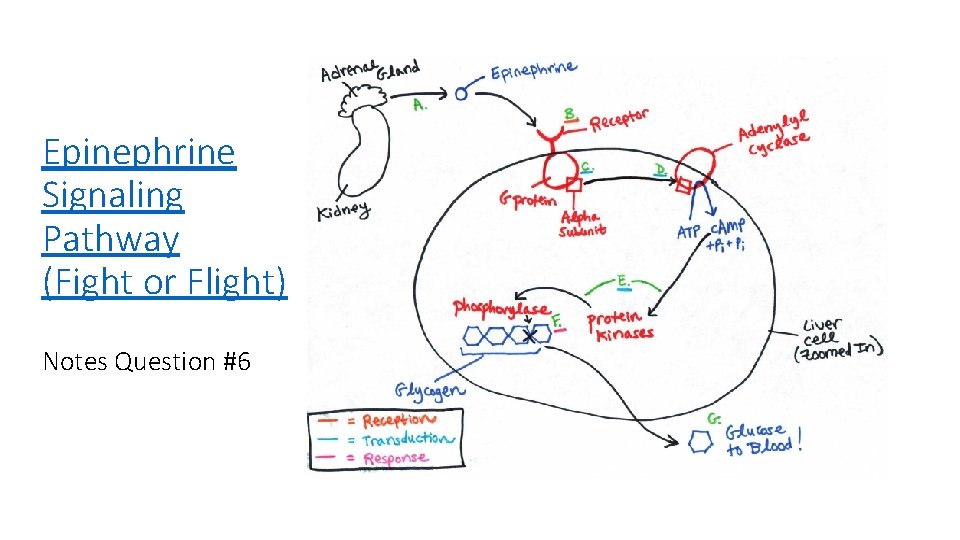 Epinephrine
Signaling
Pathway
(Fight or Flight)
Notes Question #6
Adrenal Gland
A.
Epinephrine
B.
Receptor
Adenylyl
cyclase
C.
D.
G protein
Alpha
subunit
Kidney
ATP
cAMP
+Pi+Pi
E.
Phosphorylase
F.
Protein
Kinases
Liver
cell
(Zoomed In)
Glycogen
G.
Glucose
to Blood!
= Reception
= Transduction
= Response